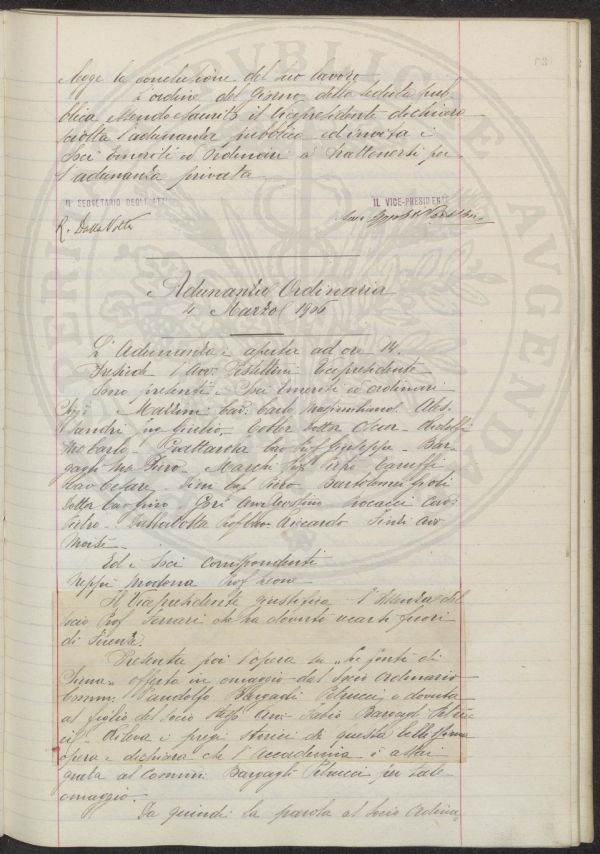 legge la conclusione del suo lavoro
L'ordine del Giorno della seduta pub-
blica essendo esaurito il Vicepresidente dichiara
sciolta l'adunanza pubblica ed invita i
Soci Emeriti ed Ordinari a trattenersi per
l'adunanza privata
IL SEGRETARIO DEGLI ATTI
IL VICE-PRESIDENTE
R. Dalla Volta
Adunanza Ordinaria
4 Marzo 1906
L'Adunanza è aperta ad ore 14.
Presiede l'Avv. Pestellini Vicepresidente
Sono presenti i Soci Emeriti ed ordinari
Sigi Mazzini Cav. Carlo Massimiliano. Ales-
sandri ing Giulio, Dottor Oscar
Carlo. Giuseppe. Bar-
gagli Piero. Marchi Prof.
Cav Cesare. Piero Bartolommei Gioli
Dottor Gino Gori Agostino Avv.
Pietro. Dalla Volta Prof Cav. Riccardo
Ed i Soci Corrispondenti
Neppi Modona Prof Leone
Il Vicepresidente giustifica l'assenza del
socio Prof Ferrari che ha dovuto recarsi fuori
di Firenze.
Presenta poi l'opera su "Le fonti di
Siena" offerta in omaggio dal Socio Ordinario
Comm. Pandolfo Bargagli Petrucci e dovuta
al figlio del Socio stesso Avv. Fabio Bargagli Petruc-
ci. Rileva i pregi storici di questa bellissima
opera e dichiara che l'Accademia è assai
grata al Comm. Bargagli Petrucci per tale
omaggio.
Dà quindi la parola al Socio Ordina-